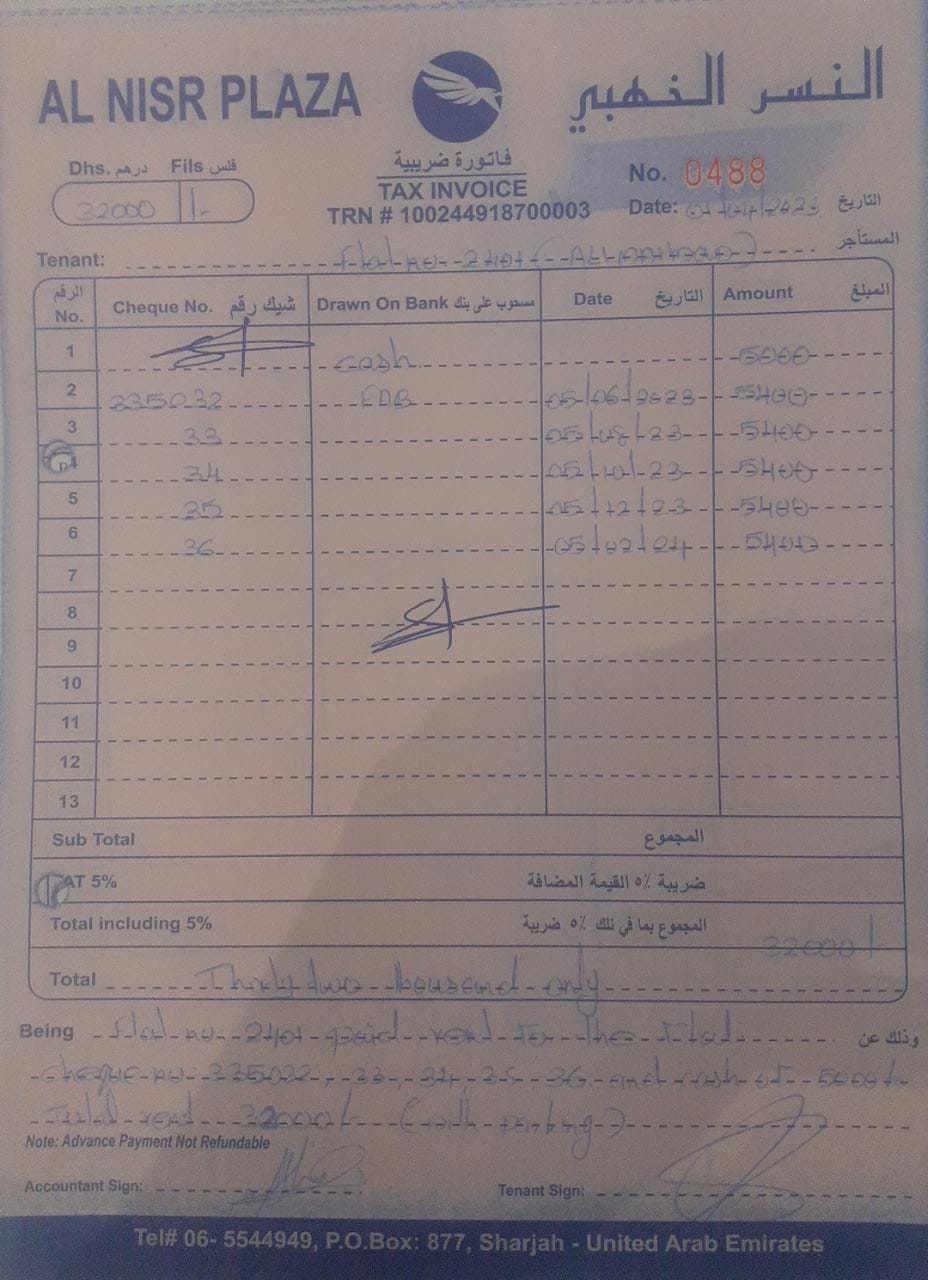 AL NISR PLAZA
النسر الذهبي
فاتورة ضريبية
TAX INVOICE
TRN # 100244918700003
Dhs. درهم Fils فلس
32000 /-
No. 0488
Date: التاريخ
Tenant: Flat no - 2401 المستأجر
الرقم No. Cheque No. شيك رقم Drawn On Bank مسحوب على بنك Date التاريخ Amount المبلغ
1 cash 5000
2 235032 05/06/2023 5400
3 33 05/08/23 5400
4 34 05/10/23 5400
5 35 05/12/23 5400
6 36 05/02/24 5400
7
8
9
10
11
12
13
Sub Total المجموع
AT 5% ضريبة ٥٪ القيمة المضافة
Total including 5% المجموع بما في تلك ٥٪ ضريبة 32000/-
Total Thirty two thousand only
Being Flat no - 2401 paid rent for the flat وذلك عن
cheque no: 335032, 33, 34, 35, 36 and cash of 5000/-
Total rent 32000/- (with parking)
Note: Advance Payment Not Refundable
Accountant Sign: Tenant Sign:
Tel# 06- 5544949, P.O.Box: 877, Sharjah - United Arab Emirates